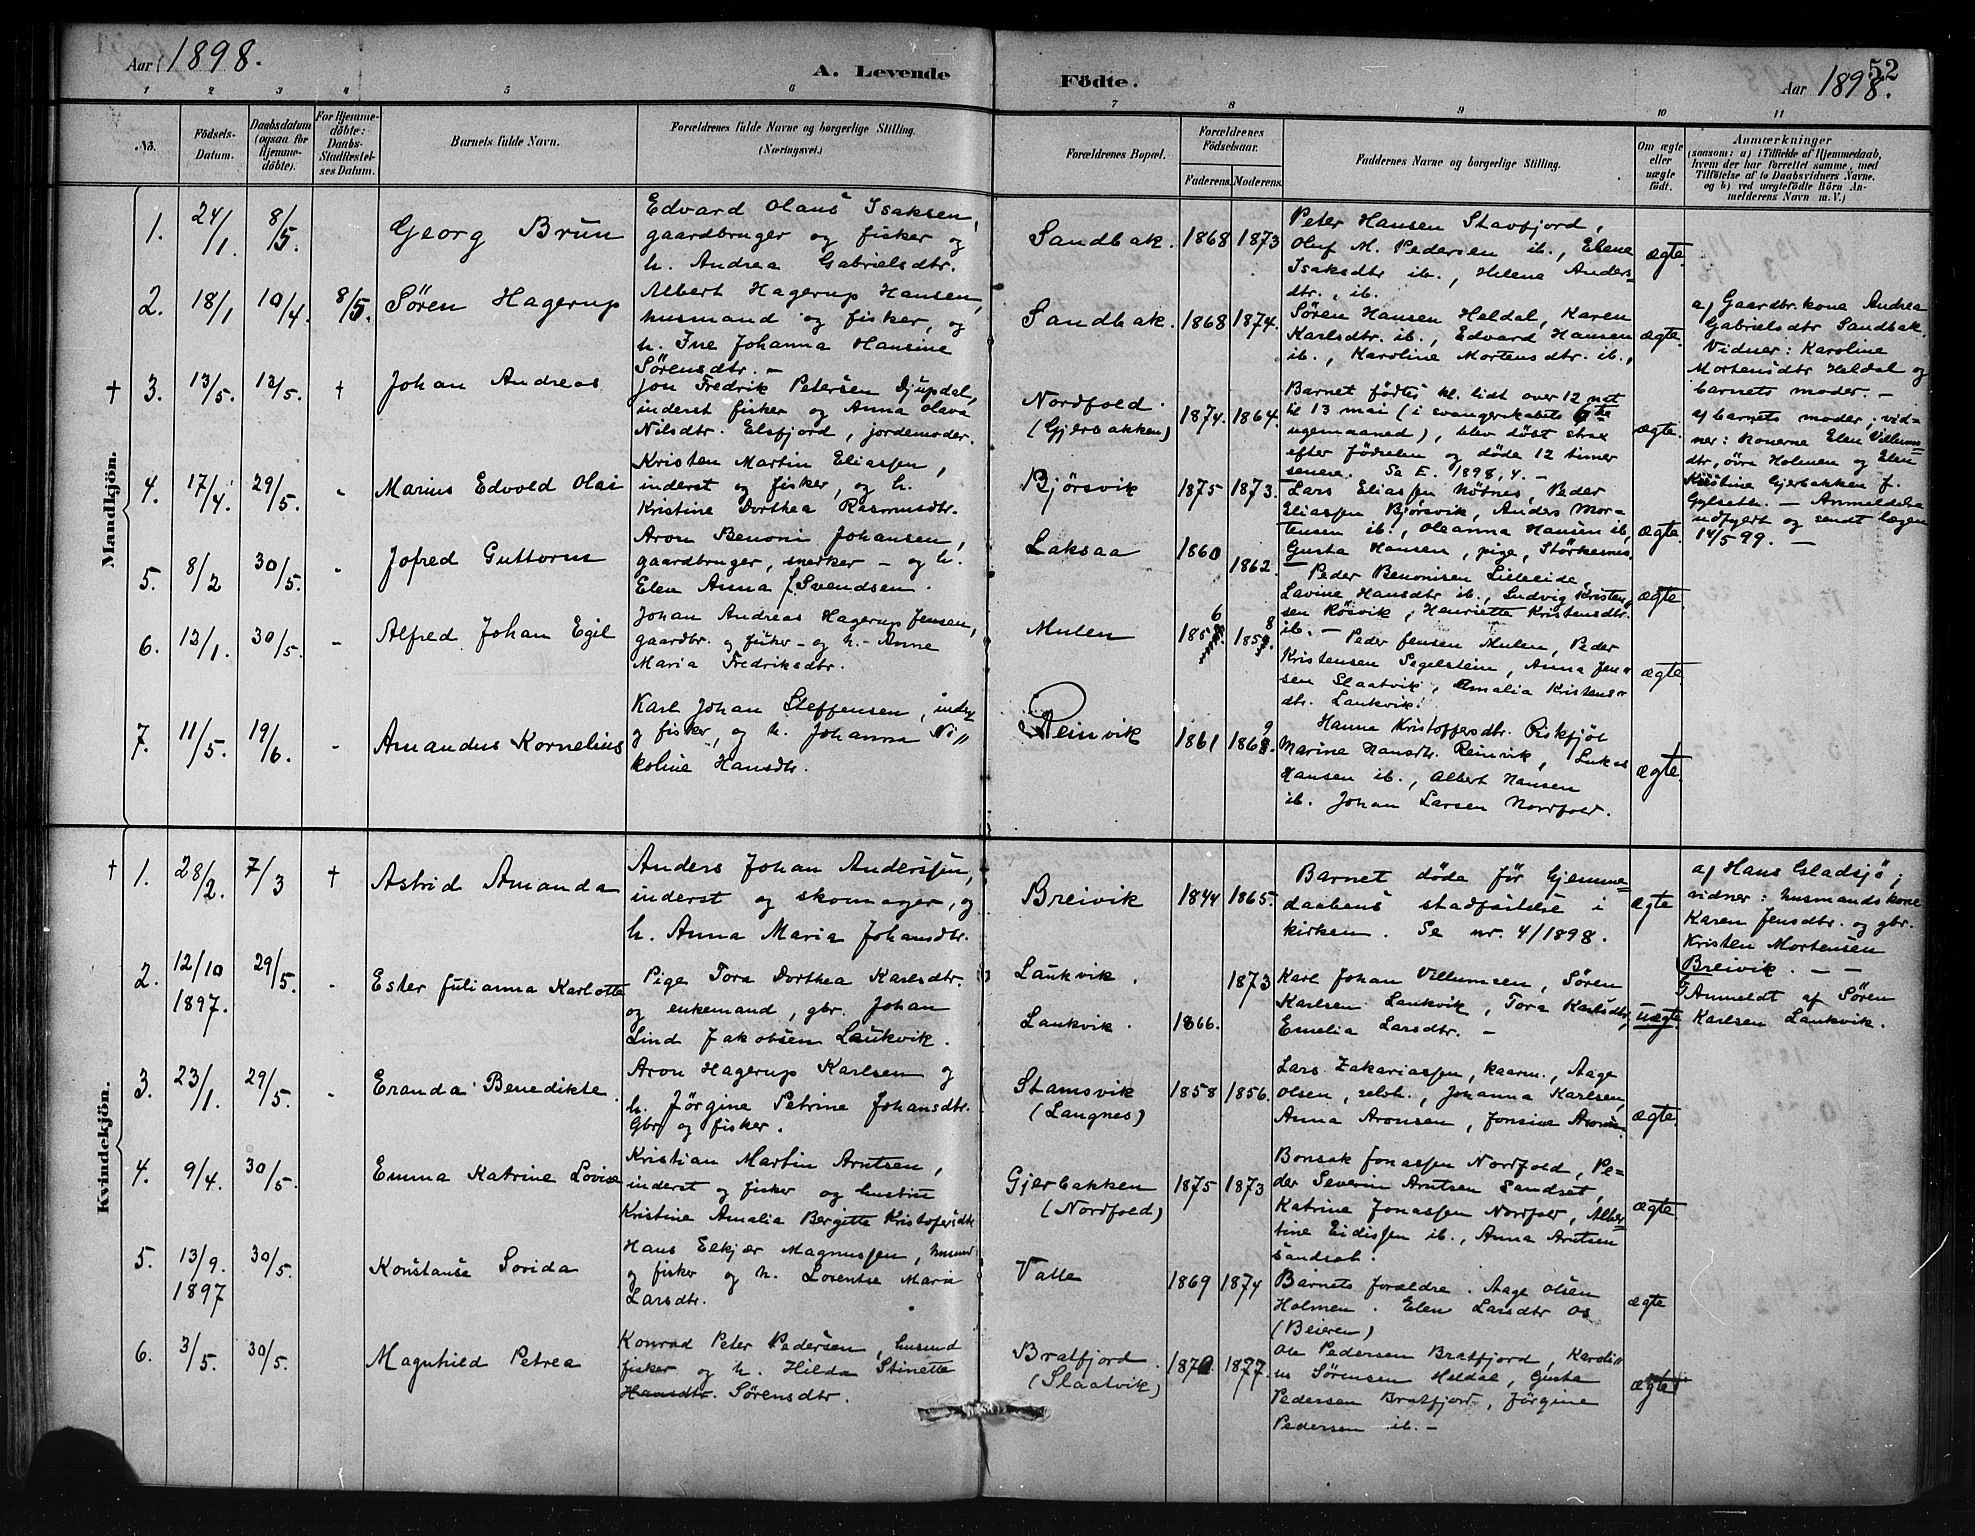 Aar 1898.
A. Levende
Födte.
52
Aar 1898.
1 2 3 4 5 6 7 8 9 10 11
No.
Födsels-
Datum.
Daabsdatum
(ogsaa for
Hjemme-
döbte).
For Hjemme-
döbte:
Daabs-
Stadfæstel-
ses Datum.
Barnets fulde Navn.
Forældrenes fulde Navne og borgerlige Stilling.
(Næringsvei.)
Forældrenes Bopæl.
Forældrenes
Födselsaar.
Faderens. Moderens.
Faddernes Navne og borgerlige Stilling.
Om ægte
eller
uægte
födt.
Anmærkninger
(saasom: a) i Tilfælde af Hjemmedaab,
hvem der har forrettet samme, med
Tilföielse af to Daabsvidners Navne.
og b) ved uægtefödte Börn An-
melderens Navn m. V.)
Mandkjön.
1. 24/1. 8/5. Georg Brun
Edvard Olaus Isaksen,
gaardbruger og fisker og
h. Andrea Gabrielsdtr.
Sandbak. 1868 1873
Peter Hansen Stavfjord,
Oluf M. Pedersen ib., Elene
Isaksdtr ib., Helena Anders-
dtr., ib.
ægte.
2. 18/1 10/4. 8/5. Sören Hagerup
Albert Hagerup Hansen,
husmand og fisker, og
h. Ine Johanna Hansine
Sörensdtr. -
Sandbak. 1868 1874.
Sören Hansen Heldal, Karen
Karlsdtr. ib., Edvard Hansen
ib., Karoline Mortensdtr. ib.,
ægte.
a) Gaardbr. kone Andrea
Gabrielsdtr Sandbak.
Vidner: Karoline
Mortensdtr Heldal og
barnets moder. -
† 3. 13/5. 13/5. † Johan Andreas
Jon Fredrik Petersen Djupdal,
inderst fisker og Anna Olava
Nilsdtr. Elsfjord, jordemoder.
Nordfold.
(Gjerbakken) 1874. 1864.
Barnet födtes kl. lidt over 12 nat
til 13 mai (i svangerskabets 6te
ugemaaned), blev döbt strax
efter födselen og döde 12 timer
senere. Se E. 1898, 4. -
ægte.
a) barnets moder; vid-
ner: konerne Elen Villums-
dtr, övre Holmen og Elen
Kristine Gjerbakken f.
Gylseth. - Anmeldelse
udfyldt og sendt lægen
14/5 99. -
4. 17/4. 29/5. - Marius Edvold Olai
Kristen Martin Eliassen,
inderst og fisker, og h.
Kristine Dorthea Rasmusdtr.
Bjørsvik 1875 1873.
Lars Eliassen Nötnes, Peder
Eliassen Bjørsvik, Anders Mor-
tensen ib., Oleanna Hansen ib,
Gusta Hansen, pige, Störkernes.
ægte.
5. 8/2 30/5. - Jofred Guttorm
Aron Benoni Johansen,
gaardbruger, snerker - og h.
Elen Anna f. Svendsen.
Laksaa 1860 1862.
Peder Benonisen Lilleeide,
Lavine Hansdtr ib., Ludvig Kristen-
sen Rösvik, Henriette Kristensdtr.
ib. -
ægte.
6. 13/1. 30/5. - Alfred Johan Egil
Johan Andreas Hagerup Jensen,
gaardbr. og fisker - og h. - Anne
Maria Fredriksdtr.
Mulen
Peder Jensen Mulen, Peder
Kristensen Segelstein, Anna Jen-
sen Slaatvik, Amalia Kristens-
dtr. Laukvik.
ægte.
7. 11/5. 19/6. - Amandus Kornelius
Karl Johan Steffensen, indr.
og fisker, og h. Johanna Ni-
koline Hansdtr.
Reinvik 1861
Hanna Kristoffersdtr.
Marine Hansdtr. Reinvik, Lukas
Hansen ib., Albert Hansen
ib. Johan Larsen Nordfold.
ægte.
Kvindekjön.
† 1. 28/2. 7/3 † Astrid Amanda
Anders Johan Anderssen,
inderst og skomager, og
h. Anna Maria Johansdtr.
Breivik 1844 1865.
Barnet döde för hjemme-
daabens stadfæstelse i
kirken. Se nr. 4/1898.
ægte
a) Hans Gladsjö;
vidner: husmandskone
Karen Jensdtr. og gbr.
Kristen Mortensen
Breivik. - -
2. 12/10 1897. 29/5. - Ester Julianna Karlotte
Pige Tora Dorthea Karlsdtr.
og enkemand, gbr. Johan
Lind Jakobsen Laukvik.
Laukvik. 1873
Laukvik. 1866.
Karl Johan Villumsen, Sören
Karlsen Laukvik, Tora Karlsdtr,
Emelia Larsdtr. -
uægte
Anmeldt af Sören
Karlsen Laukvik.
3. 23/1. 29/5. - Eranda Benedikte
Aron Hagerup Karlsen og
h. Jörgine Petrine Johansdtr.
Gbr. og fisker.
Stamsvik
(Langnes) 1858 1856.
Lars Zakariassen, kaarm., Aage
Olsen, selvh., Johanna Karlsen,
Anna Aronsen, Jonsine Aronsen.
ægte.
4. 9/4. 30/5. Emma Katrine Lovise
Kristian Martin Arntsen,
inderst og fisker og hustru
Kristine Amalia Bergitte Kristofersdtr
Gjerbakken
(Nordfold) 1875 1873
Bonsak Jonassen Nordfold, Pe-
der Severin Arntsen Sandset,
Katrine Jonassen Nordfold, Alber-
tine Eidissen ib., Anna Arntsen
Sandset.
ægte.
5. 13/9. 1897 30/5. Konstanse Lovida
Hans Elkjær Magnussen, husmd
og fisker og h. Lorentse Maria
Larsdtr.
Valle 1869 1874
Barnets forældre. Aage Olsen
Holmen. Elen Larsdtr Os
(Beieren)
ægte
6. 3/5. 30/5. Magnhild Petrea
Konrad Peter Pedersen, husmd
fisker og h. Hilda Stinette
Hansdtr. Sörensdtr.
Bratfjord
(Slaatvik) 1870. 1877.
Ole Pedersen Bratfjord, Karoli-
us Sörensen Heldal, Gusta
Pedersen Bratfjord, Jörgine
Pedersen ib. -
ægte